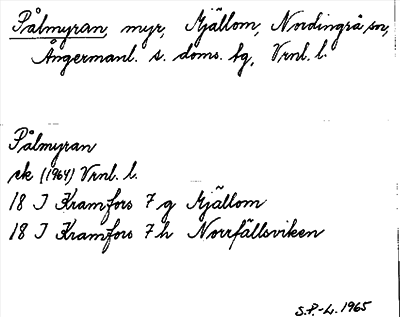 Pålmyran, myr, Mjällom, Nordingrå sn,
Ångermanl. s. doms. fg, Vrnl. l.
Pålmyran
ek (1964) Vrnl. l.
18 I Kramfors 7 g Mjällom
18 I Kramfors 7 h Norrfällsviken
S.P.-L. 1965